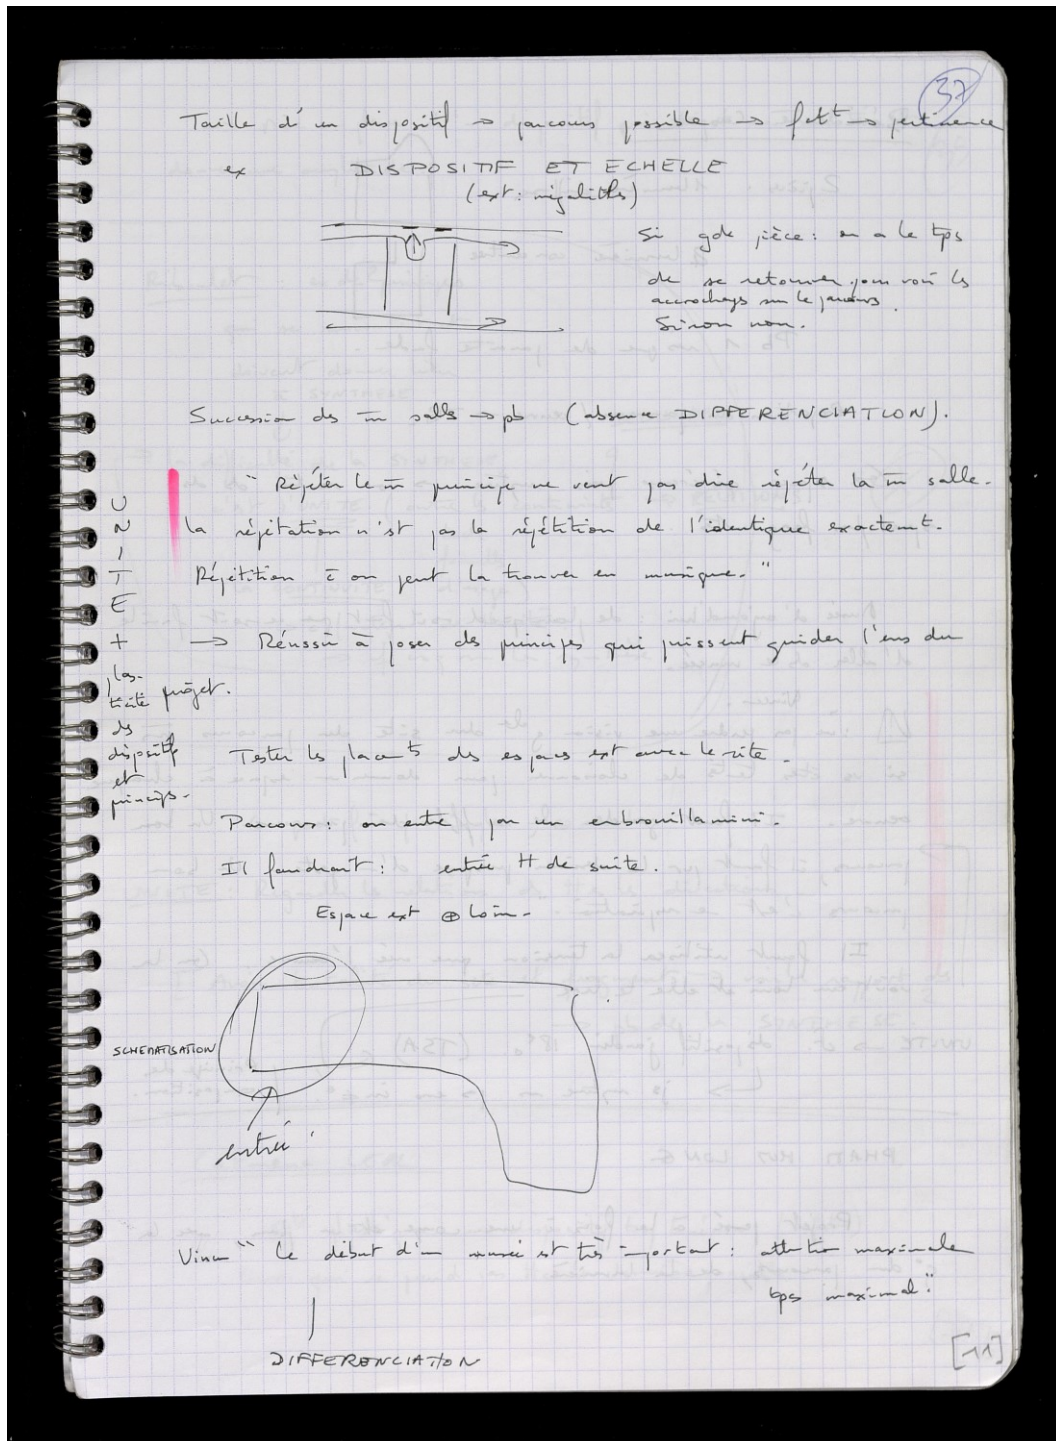 37
Taille d'un dispositif → parcours possible → fctt → pertinence
ex DISPOSITIF ET ECHELLE
(ext: mégalithes)
Si gde pièce: on a le tps
de se retourner pour voir les
accrochages sur le parcours.
Sinon non.
Succession des m̄ salles → pb (absence DIFFERENCIATION).
" Répéter le m̄ principe ne veut pas dire répéter la m̄ salle.
la répétation n'est pas la répétition de l'identique exactemt.
Répétition c̄ on peut la trouver en musique. "
→ Réussir à poser des principes qui puissent guider l'ens du
projet.
UNITE
+
plas-
ticité
ds
dispositifs
et
principes.
Tester les placets des espaces ext avec le site.
Parcours: on entre par un embrouillamini.
Il faudrait: entrée H de suite.
Espace ext ⊕ loin.
SCHEMATISATION
entrée
" Le début d'un musée est très important: attention maximale
tps maximal."
DIFFERENCIATION
[11]